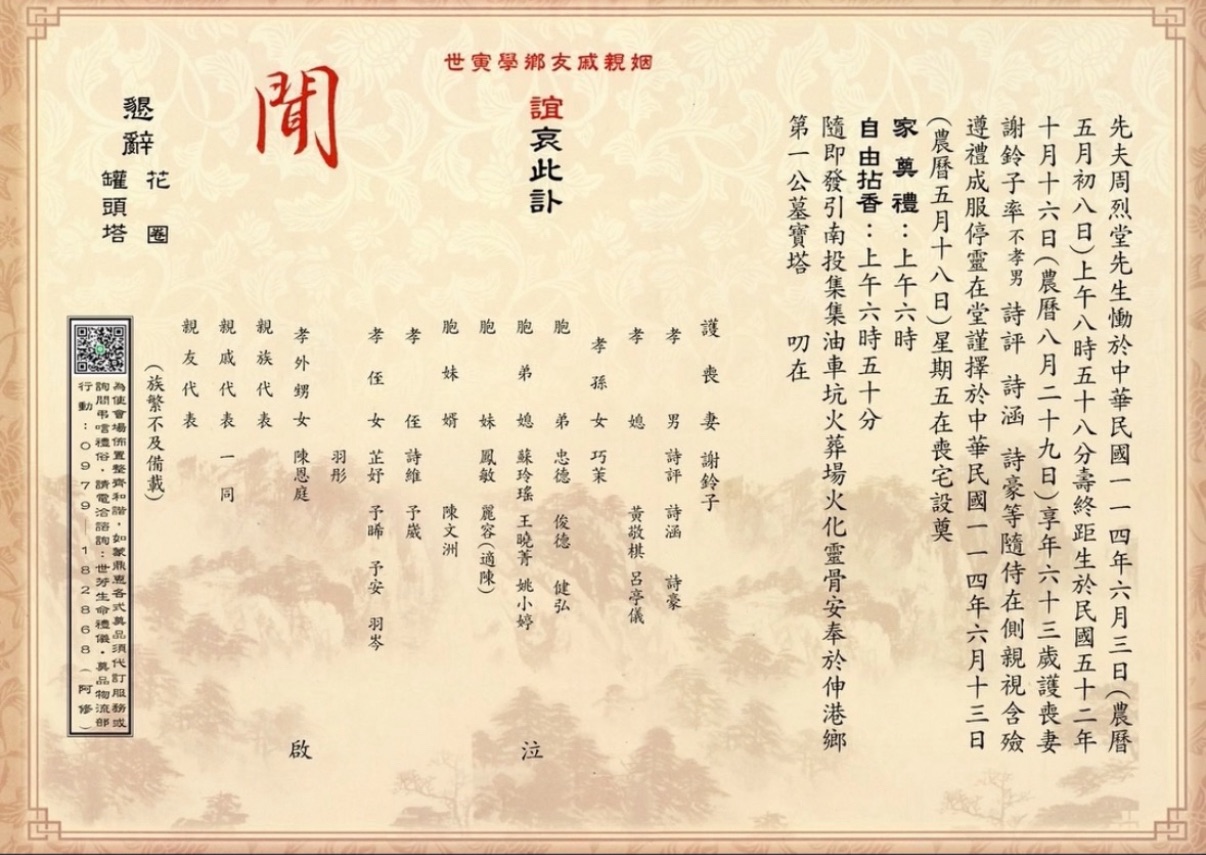 先夫周烈堂先生慟於中華民國一一四年六月三日(農曆
五月初八日)上午八時五十八分壽終距生於民國五十二年
十月十六日(農曆八月二十九日)享年六十三歲護喪妻
謝鈴子率不孝男 詩評 詩涵 詩豪等隨侍在側親視含殮
遵禮成服停靈在堂謹擇於中華民國一一四年六月十三日
(農曆五月十八日)星期五在喪宅設奠
家奠禮:上午六時
自由拈香:上午六時五十分
隨即發引南投集集油車坑火葬場火化靈骨安奉於伸港鄉
第一公墓寶塔 叨在
世寅學鄉友戚親姻
誼哀此訃
聞
懇辭
花圈
罐頭塔
護喪妻 謝鈴子
孝男 詩評 詩涵 詩豪
孝媳 黃敬棋 呂亭儀
孝孫女 巧茉
胞弟 忠德 俊德 健弘
胞弟媳 蘇玲瑤 王曉菁 姚小婷
胞妹 鳳敏 麗容(適陳)
胞妹婿 陳文洲
孝侄 詩維 予崴
孝侄女 芷妤 予晞 予安 羽岑
羽彤
孝外甥女 陳恩庭
親族代表
親戚代表 一同
親友代表
(族繁不及備載)
泣
啟
為使會場佈置整齊和諧,如蒙鼎惠各式奠品須代訂服務或
詢問弔唁禮俗,請電洽諮詢:世芳生命禮儀・奠品物流部
行動:0979-182868(阿修)